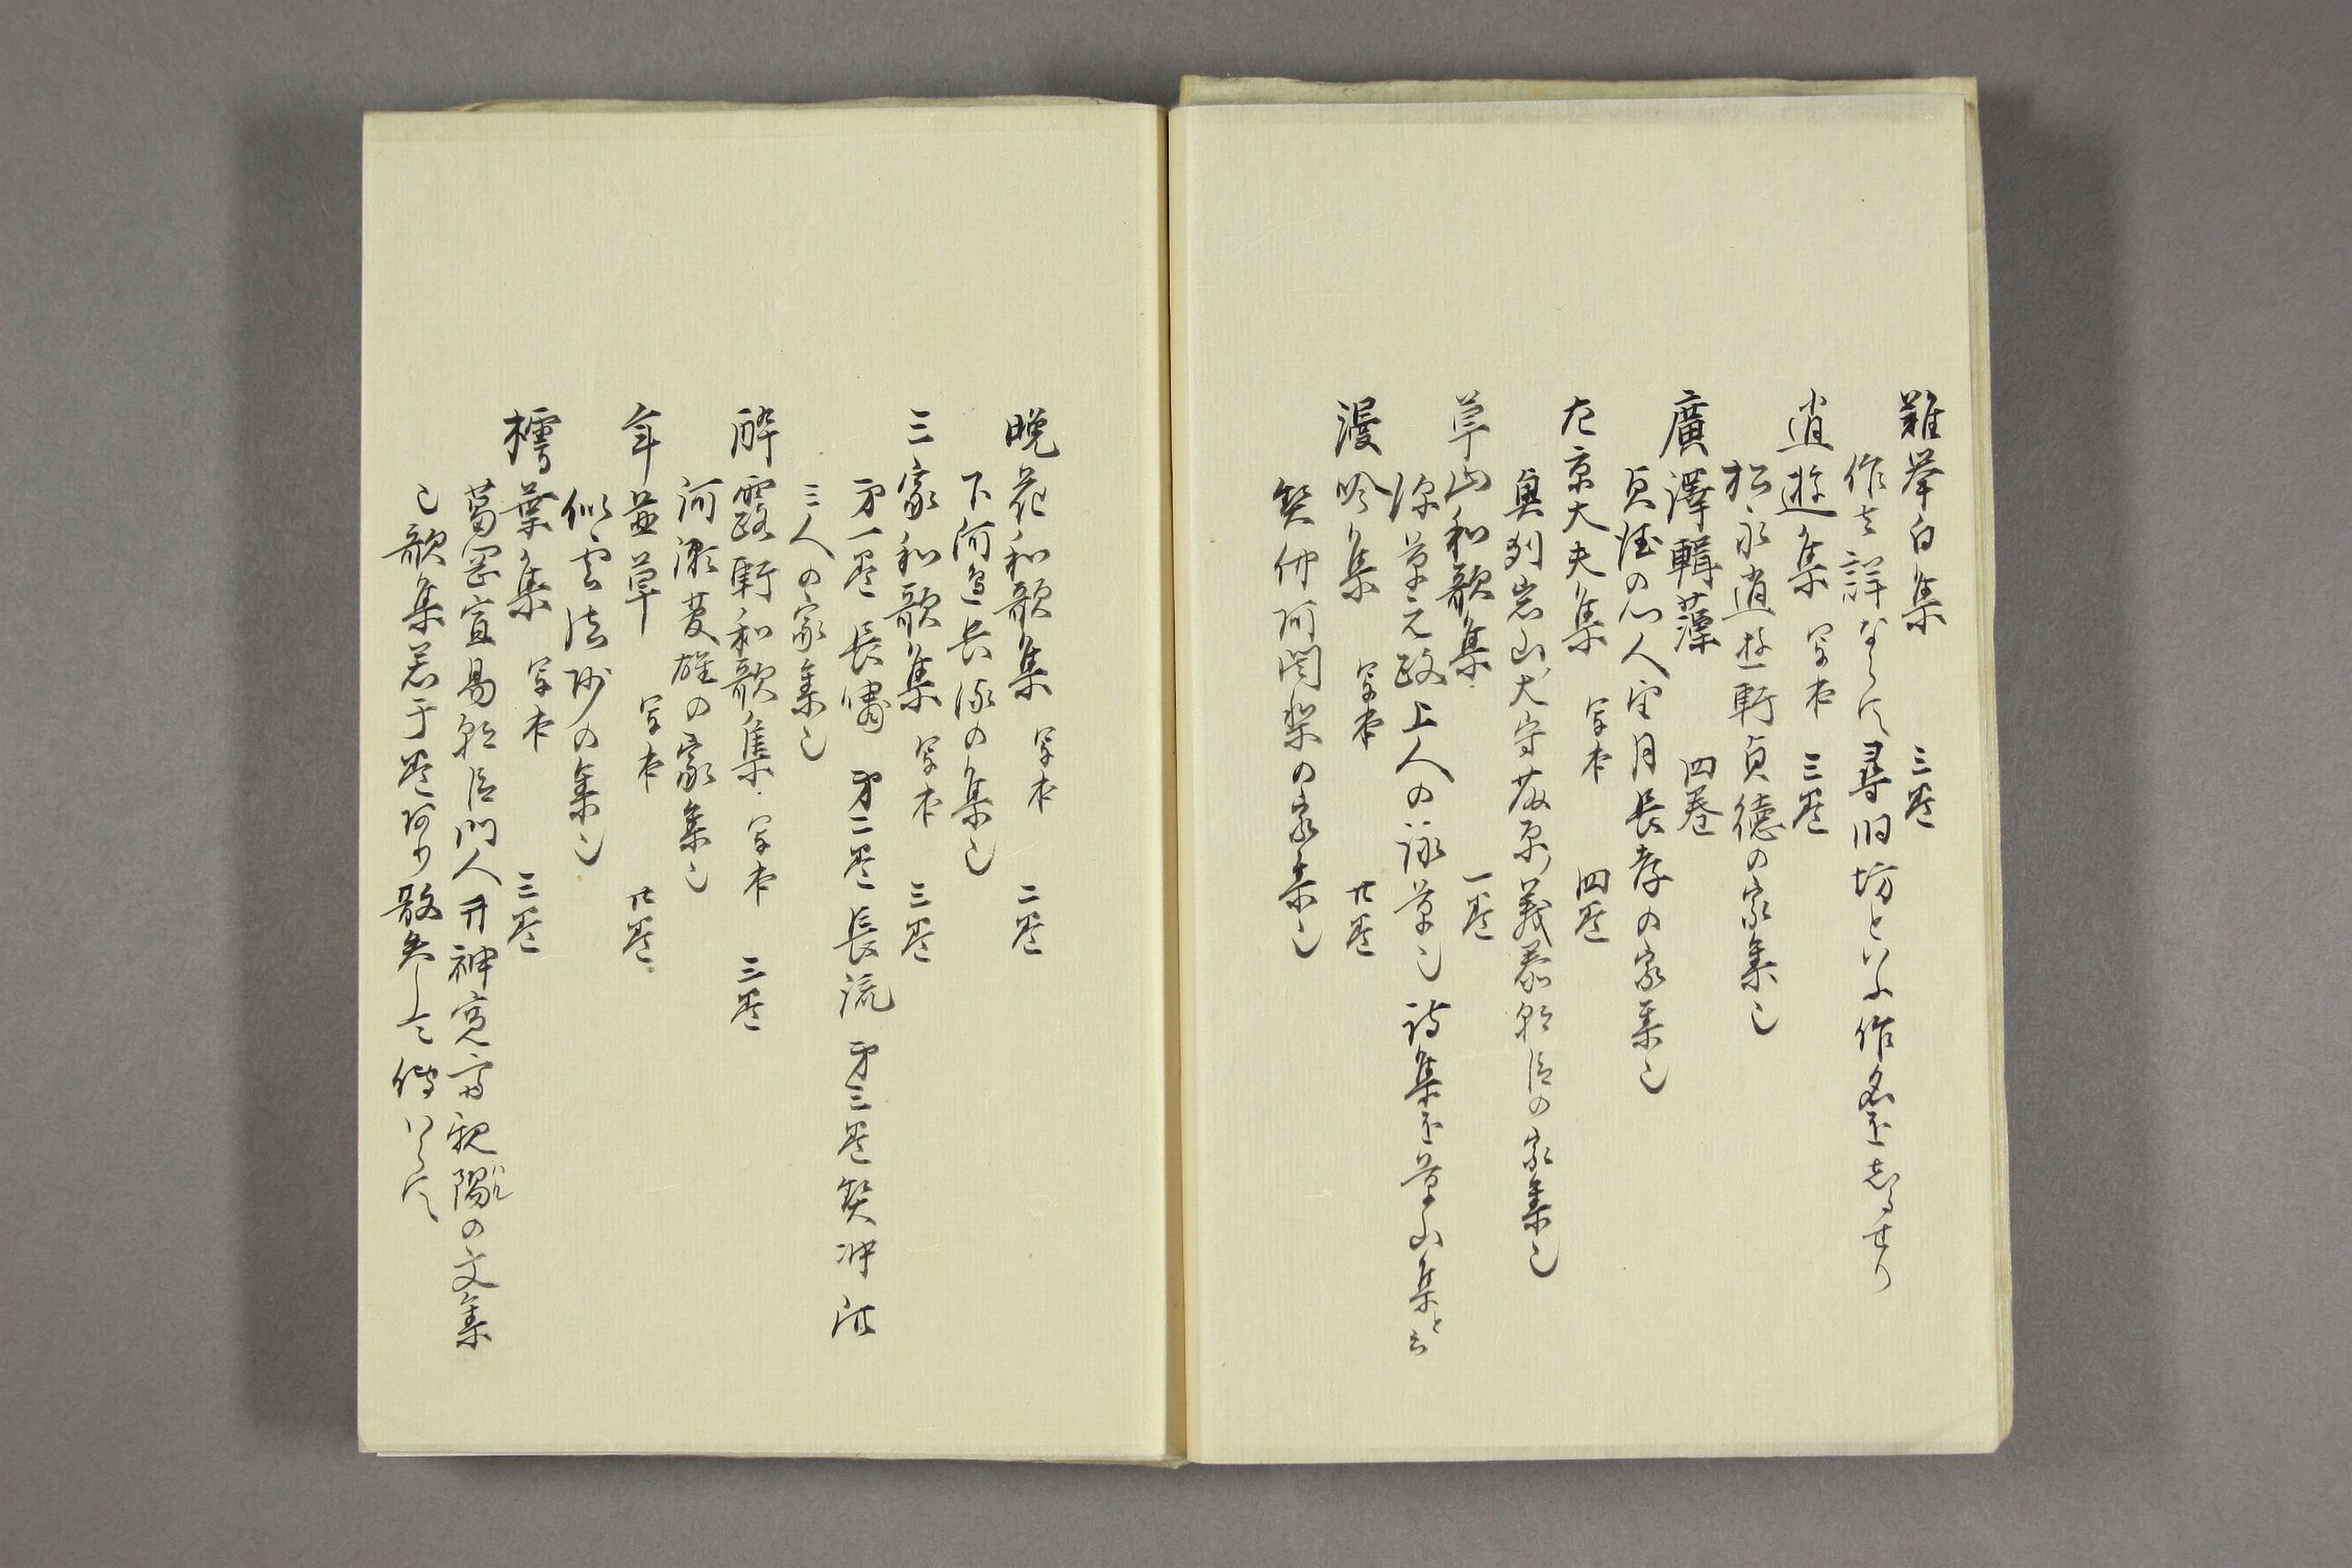 難挙白集 三巻
作者詳ならす尋旧坊といふ作名を志るせり
逍遊集 写本 三巻
松永逍遊軒貞徳の家集也
廣澤輯藻 四巻
貞徳の門人望月長孝の家集也
左京大夫集 写本 四巻
奥列岩山大守藤原義泰朝臣の家集也
草山和歌集 一巻
深草元政上人の詠草也詩集を草山集と云
漫吟集 写本 廿巻
契仲阿闍梨の家集也
晩花和歌集 写本 二巻
下河邊長流の集也
三家和歌集 写本 三巻
第一巻長嘯 第二巻長流 第三巻契冲 法
三人の家集也
酔露軒和歌集 写本 三巻
河瀬菅雄の家集也
年並草 写本 廿巻
似雲法師の集也
樗葉集 写本 三巻
葛岡宣易朝臣門人并神寛斎親隣の文集
也歌集若干巻あり散失して伝はらす